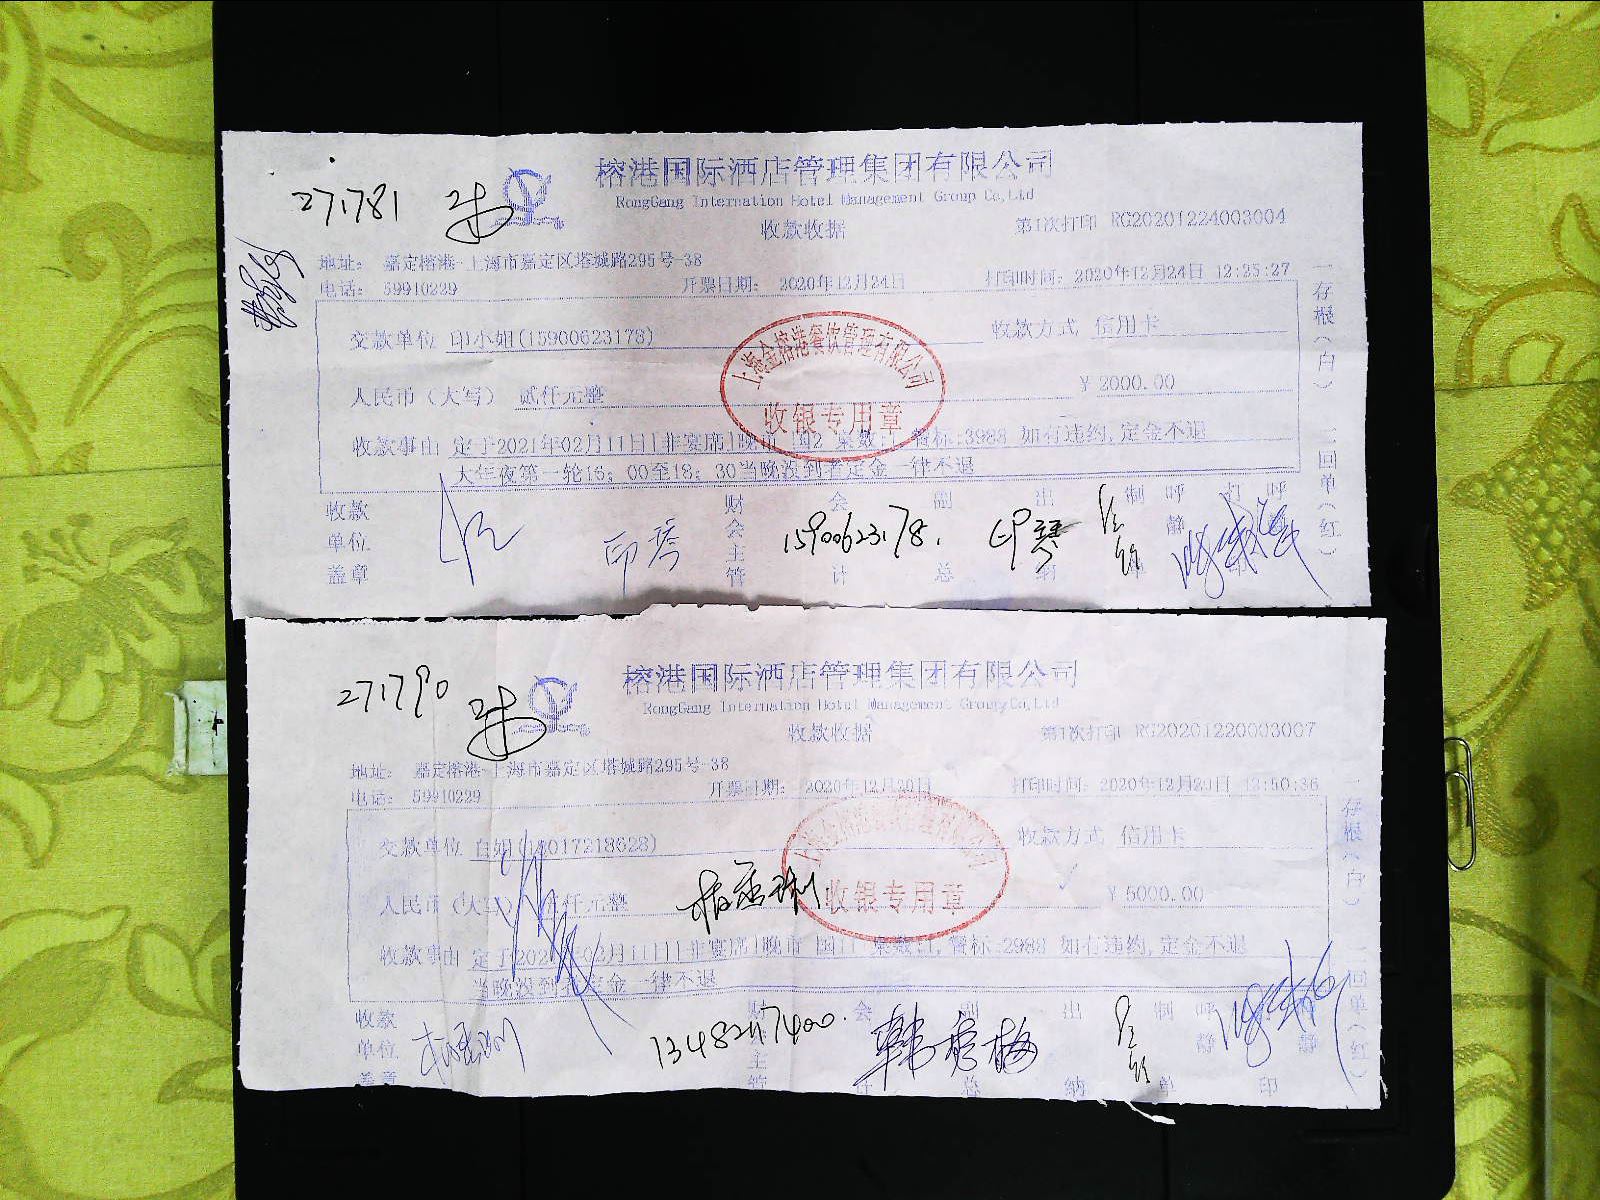 271781
榕港国际酒店管理集团有限公司
RongGang Internation Hotel Management Group Co,Ltd
收款收据
第1次打印 RG20201224003004
地址： 嘉定榕港-上海市嘉定区塔城路295号-38
电话： 59910229
开票日期： 2020年12月24日
打印时间：2020年12月24日 12:25:27
交款单位 印小姐(15900623178)
收款方式 信用卡
人民币（大写） 贰仟元整
￥2000.00
上海金榕港餐饮管理有限公司
收银专用章
收款事由 定于2021年02月11日|非宴席|晚市 餐标:3988 如有违约,定金不退
大年夜第一轮16：00至18：30当晚没到者定金一律不退
一存根（白） 二回单（红）
收款单位盖章
财会主管
会计
副总
出纳
制
呼静
打
呼
印琴
15900623178.
印琴
271790
榕港国际酒店管理集团有限公司
RongGang Internation Hotel Management Group Co,Ltd
收款收据
第1次打印 RG20201220003007
地址： 嘉定榕港-上海市嘉定区塔城路295号-38
电话： 59910229
开票日期： 2020年12月20日
打印时间：2020年12月20日 12:50:36
交款单位
收款方式 信用卡
人民币（大写） 仟元整
￥5000.00
收银专用章
收款事由 定于2021年02月11日|非宴席|晚市 餐标:2988 如有违约,定金不退
当晚没到者定金一律不退
一存根（白） 二回单（红）
收款单位盖章
财 主管
会计
副总
出纳
制单
呼静
印
韩彦梅